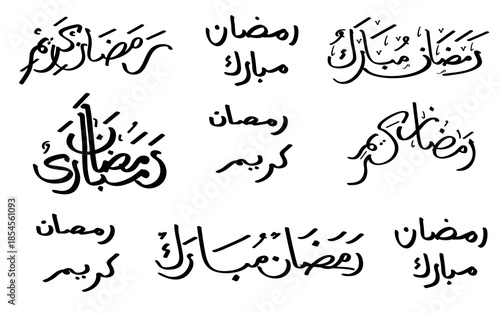 رَمَضَان كَرِيم
رمضان
مبارك
رَمَضَان مُبَارَكْ
رَمَضَان
مُبَارَك
رمضان
كريم
رَمَضَان كَرِيم
رمضان
كريم
رَمَضَان مُبَارَكْ
رمضان
مبارك
Adobe Stock | #1854561093